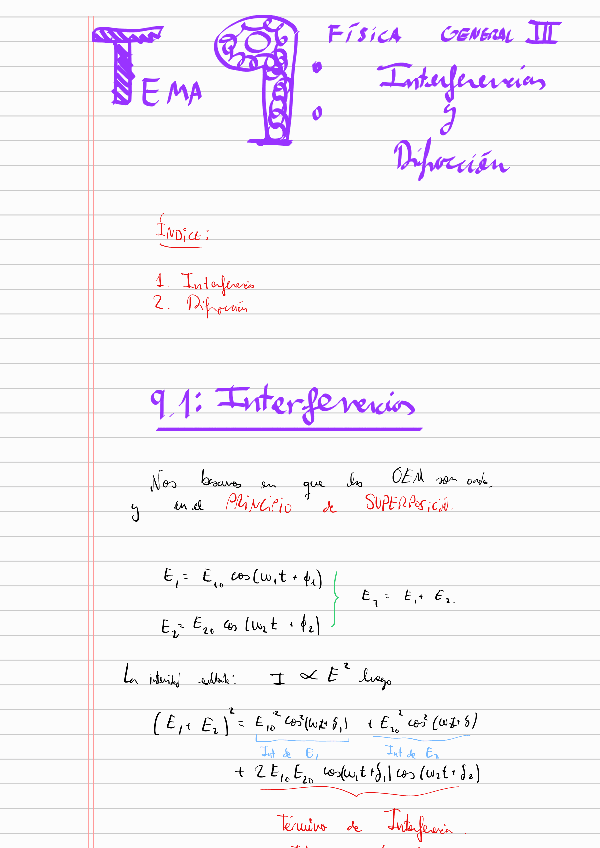 FÍSICA GENERAL III
TEMA 9: Interferencias
y
Difracción
ÍNDICE:
1. Interferencia
2. Difracción
9.1: Interferencias
Nos basamos en que las OEM son onda.
y en el PRINCIPIO de SUPERPOSICIÓN.
E₁ = E₁₀ cos(ω₁t + ϕ₁)
E_T = E₁ + E₂.
E₂ = E₂₀ cos(ω₂t + ϕ₂)
La intensidad I ∝ E² luego
(E₁ + E₂)² = E₁₀² cos²(ωt + δ₁) + E₂₀² cos²(ωt + δ)
Int de E₁ Int de E₂
+ 2 E₁₀ E₂₀ cos(ω₁t + δ₁) cos(ω₂t + δ₂)
Término de Interferencia